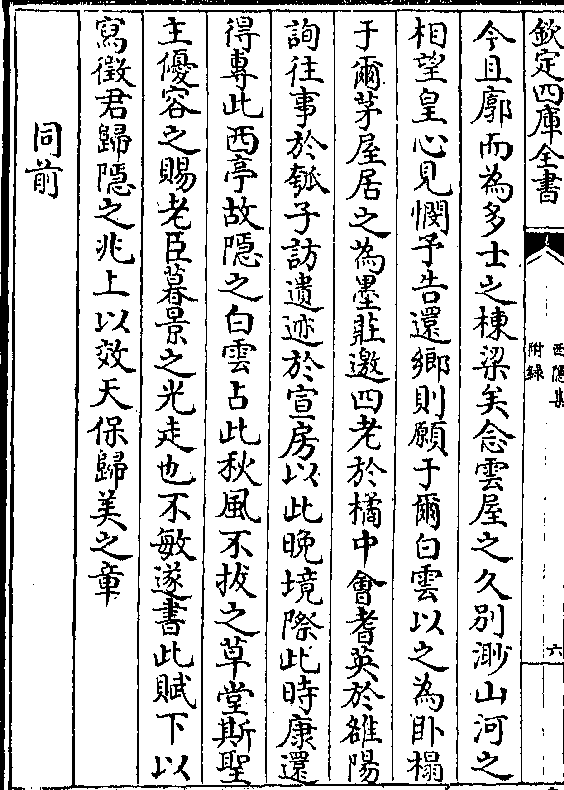 欽定四庫全書
西隱集
附録
六
今且廓而為多士之棟梁矣念雲屋之久别渺山河之
相望皇心見憫予告還鄉則願于爾白雲以之為卧榻
于爾茅屋居之為墨莊邀四老於橘中會耆英於雒陽
詢往事於瓠子訪遺迹於宣房以此晚境際此時康還
得專此西亭故隱之白雲占此秋風不拔之草堂斯聖
主優容之賜老臣暮景之光走也不敏遂書此賦下以
寫徴君歸隱之兆上以效天保歸美之章
同前